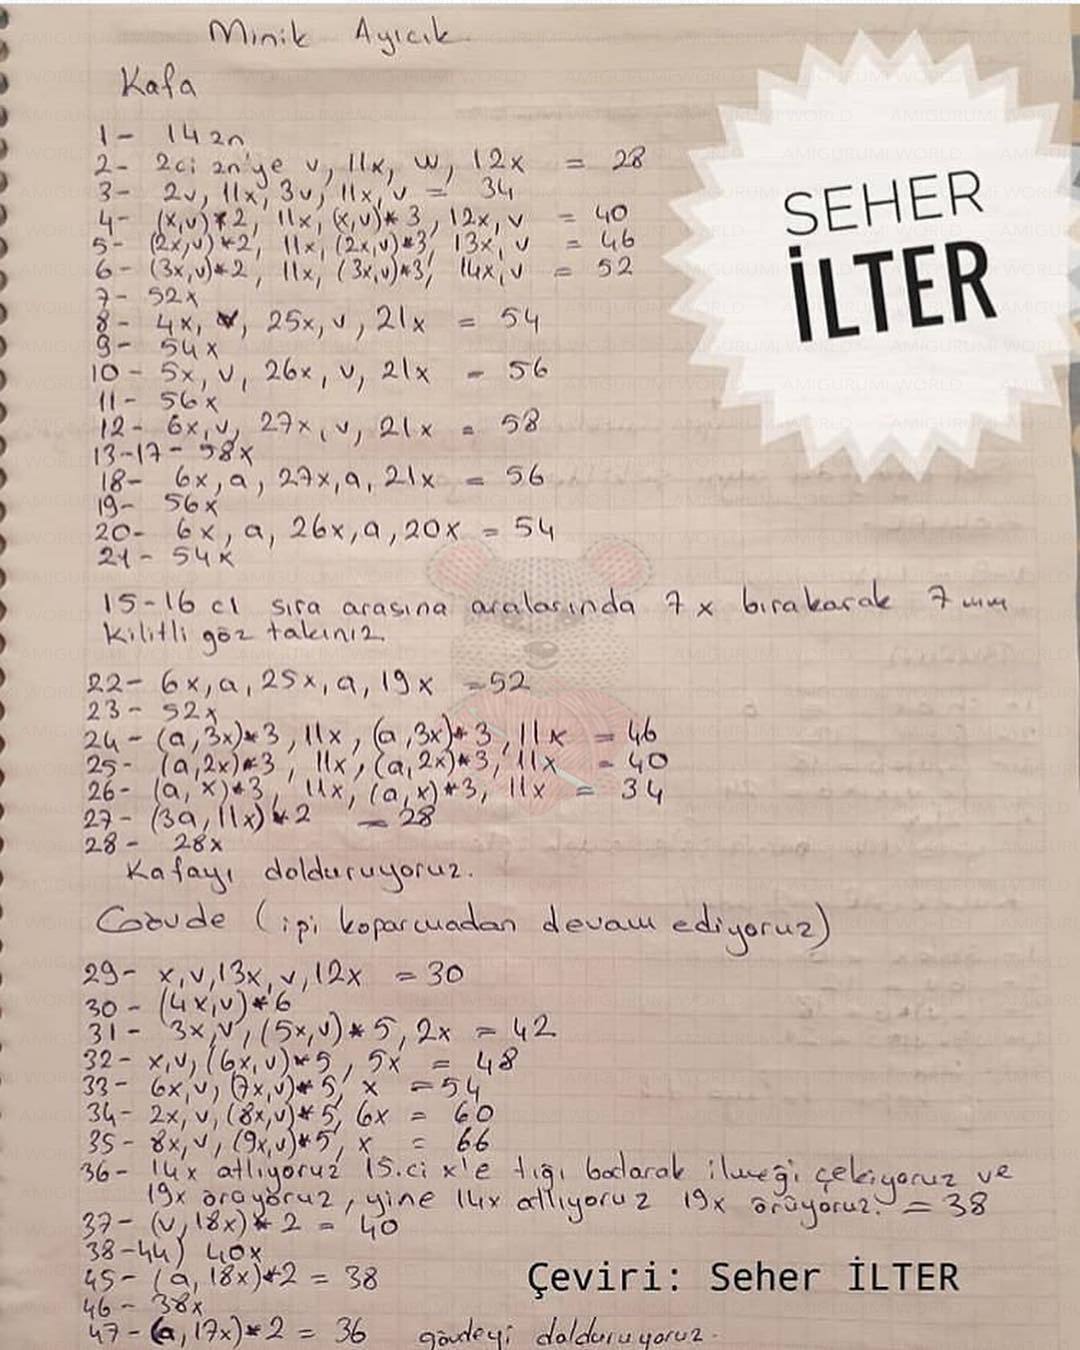 Minik Ayıcık
Kafa
1- 14 zn
2- 2ci zn'ye v, 11x, w, 12x = 28
3- 2v, 11x, 3v, 11x, v = 34
4- (x,v)*2, 11x, (x,v)*3, 12x, v = 40
5- (2x,v)*2, 11x, (2x,v)*3, 13x, v = 46
6- (3x,v)*2, 11x, (3x,v)*3, 14x, v = 52
7- 52x
8- 4x, v, 25x, v, 21x = 54
9- 54x
10- 5x, v, 26x, v, 21x = 56
11- 56x
12- 6x, v, 27x, v, 21x = 58
13-17- 58x
18- 6x, a, 27x, a, 21x = 56
19- 56x
20- 6x, a, 26x, a, 20x = 54
21- 54x
15-16 cı sıra arasına aralarında 7x bırakarak 7 mm
kilitli göz takınız.
22- 6x, a, 25x, a, 19x = 52
23- 52x
24- (a,3x)*3, 11x, (a,3x)*3, 11x = 46
25- (a,2x)*3, 11x, (a,2x)*3, 11x = 40
26- (a, x)*3, 11x, (a,x)*3, 11x = 34
27- (3a, 11x)*2 = 28
28- 28x
Kafayı dolduruyoruz.
Gövde (ipi koparmadan devam ediyoruz)
29- x, v, 13x, v, 12x = 30
30- (4x, v)*6
31- 3x, v, (5x, v)*5, 2x = 42
32- x, v, (6x, v)*5, 5x = 48
33- 6x, v, (7x, v)*5, x = 54
34- 2x, v, (8x, v)*5, 6x = 60
35- 8x, v, (9x, v)*5, x = 66
36- 14x atlıyoruz 15.ci x'e tığı batırarak ilmeği çekiyoruz ve
19x örüyoruz, yine 14x atlıyoruz 19x örüyoruz. = 38
37- (v, 18x)*2 = 40
38-44) 40x
45- (a, 18x)*2 = 38
46- 38x
47- (a, 17x)*2 = 36 gövdeyi dolduruyoruz.
SEHER
İLTER
Çeviri: Seher İLTER
AMIGURUMI WORLD